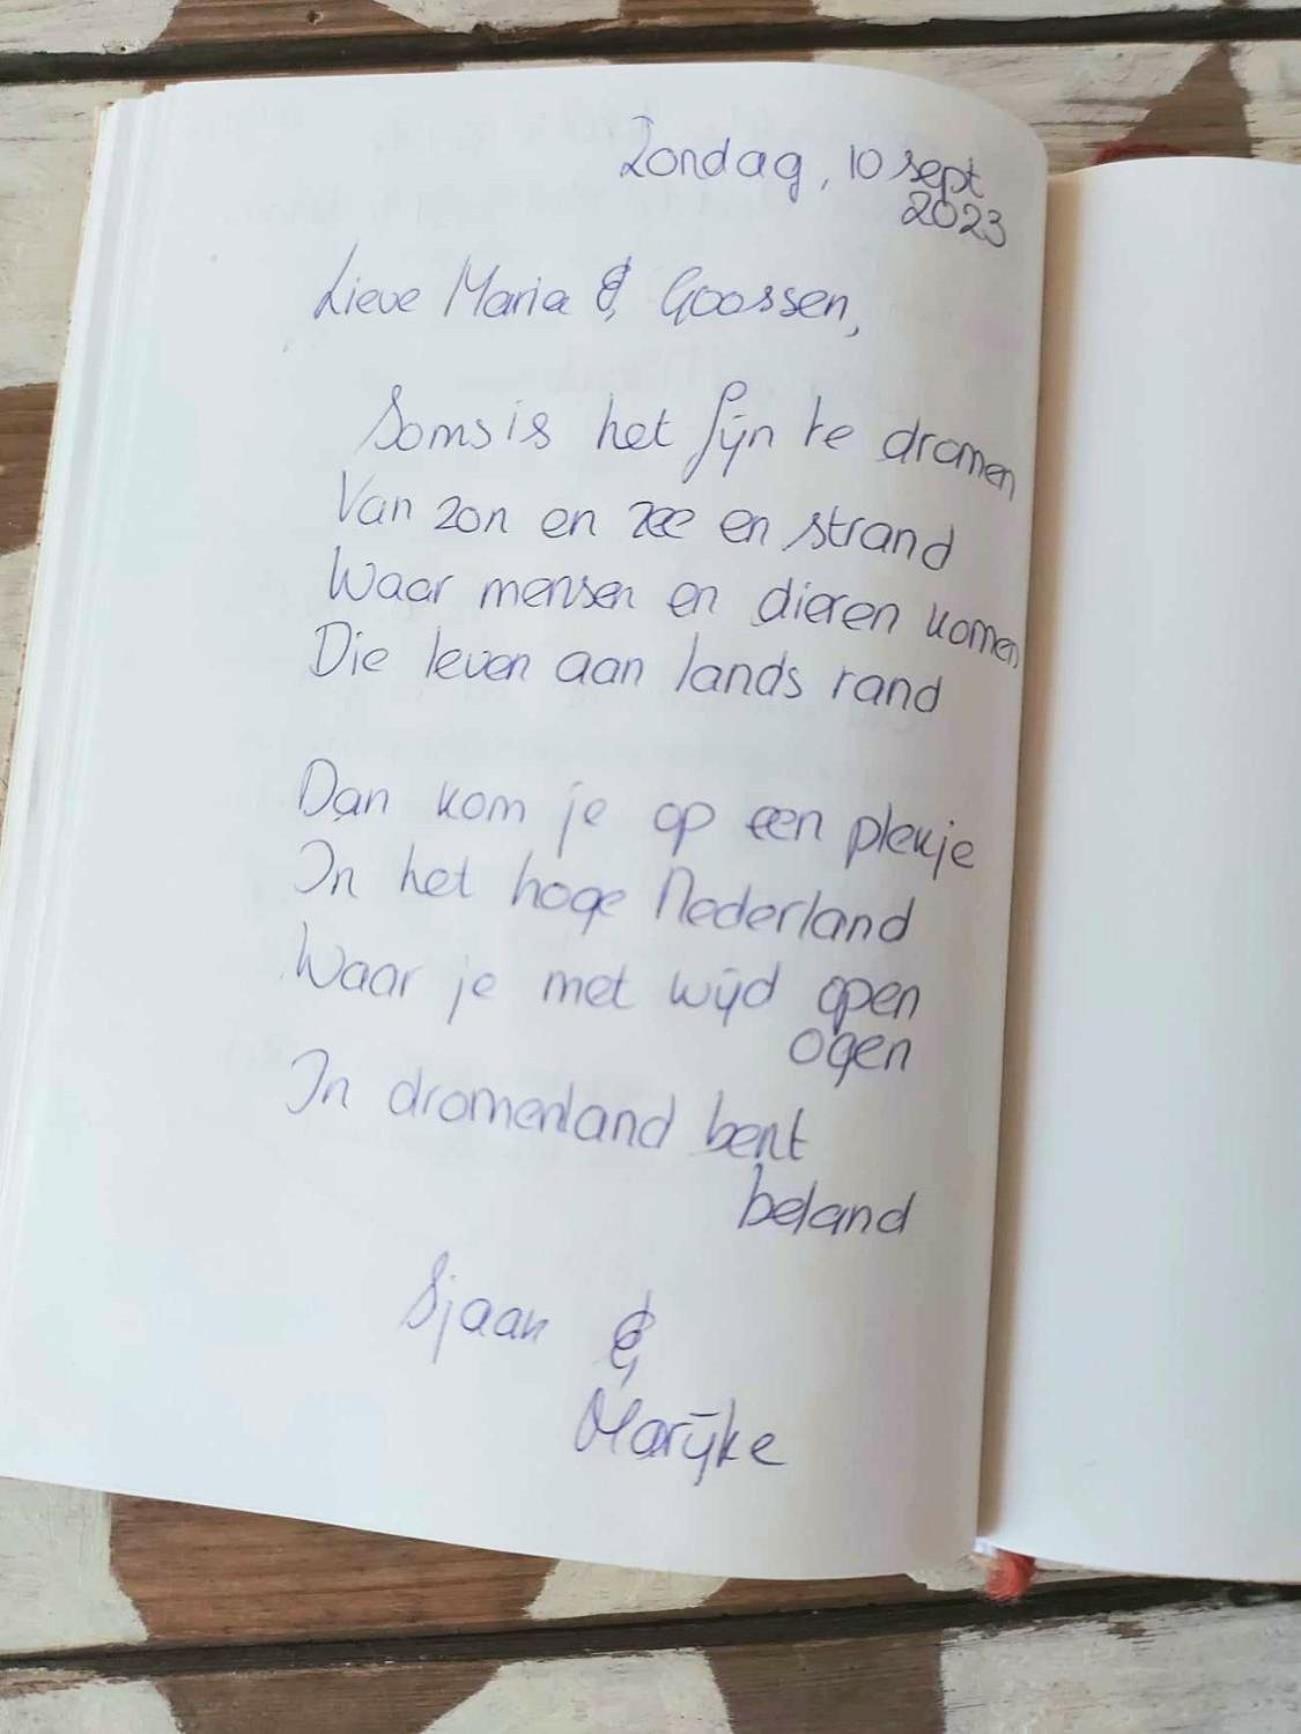 Zondag, 10 sept
2023
Lieve Maria & Goossen,
Soms is het fijn te dromen
Van zon en zee en strand
Waar mensen en dieren komen
Die leven aan lands rand
Dan kom je op een plekje
In het hoge Nederland
Waar je met wijd open
ogen
In dromenland bent
beland
Sjaan &
Marijke